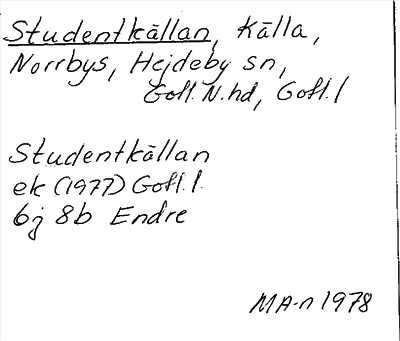 Studentkällan, Källa,
Norrbys, Hejdeby sn,
Gotl. N. hd, Gotl. l
Studentkällan
ek (1977) Gotl. l.
6j 8b Endre
MA-n 1978